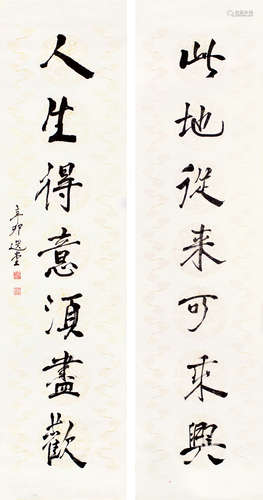 此地從来可乘興
人生得意須盡歡
辛卯選堂